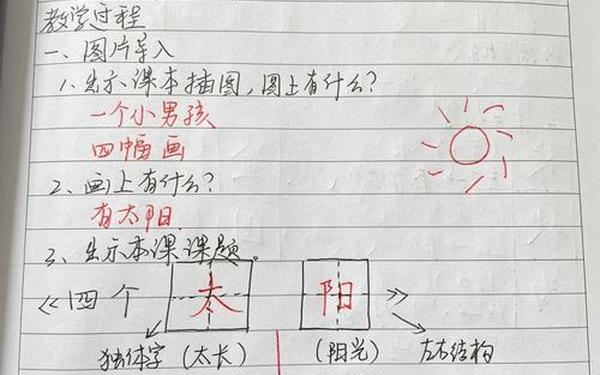 教学过程
一、图片导入
1、出示课本插图,图上有什么?
一个小男孩
四幅画
2、画上有什么?
有太阳
3、出示本课课题。
《四个 太 阳》
独体字(太长) (阳光) 左右结构